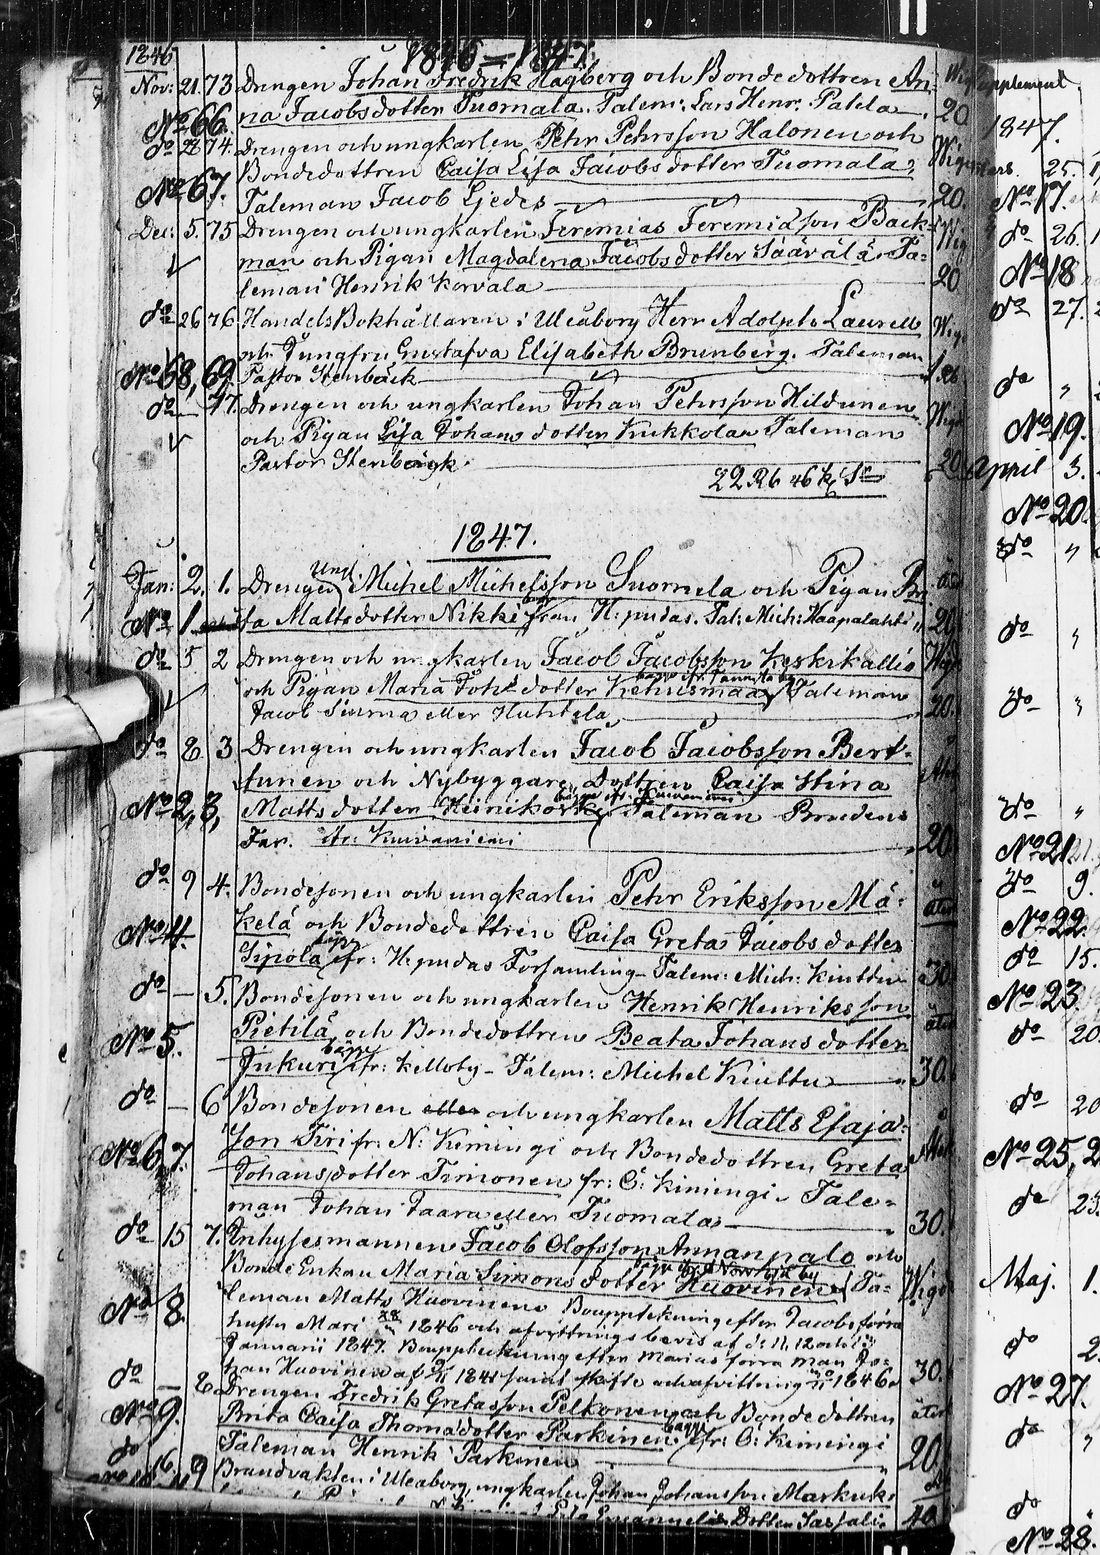 1846 1846 — 1847.
Nov: 21. 73 Drengen Johan Fredrik Hagberg och Bondedottren An-
na Jacobsdotter Tuomala. Talem: Lars Henr. Patela 20
No 66.
do 22 74 Drengen och ungkarlen Pehr Pehrsson Halonen och
Bondedottren Caisa Lisa Jacobsdotter Tuomala,
No 67. Taleman Jacob Ljedes 20.
Dec: 5. 75 Drengen och ungkarlen Jeremias Jeremiasson Back-
man och Pigan Magdalena Jacobsdotter Säävälä. Ta-
leman Henrik Korvala 20
do 26 76 Handels Bokhållaren i Uleåborg Herr Adolph Laurell
och Jungfru Gustafva Elisabeth Brunberg. Taleman
No 68, 69 Pastor Stenbäck
do — 77. Drengen och ungkarlen Johan Pehrsson Hildunen
och Pigan Lisa Johansdotter Kukkola Taleman
Pastor Stenbäck. 20
22 Rb 46 k Sr
1847.
Jan: 2. 1. Drengen Michel Michelsson Suomela och Pigan Bri
No 1 ta Mattsdotter Nikki från H:pudas. Tal: Mich: Haapalahti 20
do 5 2 Drengen och ungkarlen Jacob Jacobsson Keskikallio
och Pigan Maria Joh:dotter Taleman
Jacob Siurua eller Huhtela 20.
do 8 3 Drengen och ungkarlen Jacob Jacobsson Bert-
tunen och Nybyggare Dottren Caisa Stina
No 2, 3, Mattsdotter Heinikoski Taleman Brudens
Far. fr: Kuivaniemi 20.
do 9 4. Bondesonen och ungkarlen Pehr Eriksson Mä-
kelä och Bondedottren Caisa Greta Jacobsdotter
No 4. Sipola fr: H:pudas Församling – Talem: Mich: Kinttu 30
do — 5. Bondesonen och ungkarlen Henrik Henriksson
Pietilä och Bondedottren Beata Johansdotter
No 5. Inkuri fr: Kelloby – Talem: Michel Kinttu 30.
do — 6 Bondesonen och ungkarlen Matts Esaja-
No 6, 7. son Tiri fr. N: Kimingi och Bondedottren Greta
Johansdotter Timonen fr: Ö: Kimingi – Tale-
man Johan Jaara eller Tuomala 30.
do 15 7. Inhysesmannen Jacob Olofsson Annanpalo och
Bonde Enkan Maria Simonsdotter Huovinen Ta-
No 8. leman Matts Huovinen Bouppteckning efter Jacobs förra
hustru Mari 1846 och afvittringsbevis af d: 11, 12 och 13
Januarii 1847. Bouppteckning efter Marias förra man Jo-
han Huovinen af 1841 samt skifte och afvittring 1846 30.
do — 8 Drengen Fredrik Gretasson Pelkonen och Bondedottren
No 9. Brita Caisa Thomasdotter Parkinen fr: Ö: Kimingi
Taleman Henrik Parkinen 20.
do 16. 9 Brandvakten i Uleåborg, ungkarlen Johan Johansson Markuks
Lisa Emanuels Dotter 40
Supplement
1847.
Mars. 25.
No 17.
do 26.
No 18
do 27.
do "
No 19.
April 3.
No 20.
do "
do "
do "
do "
No 21
do 9.
No 22
do 15.
No 23
do 20.
do 20
No 25, 2
do 23.
Maj. 1.
do 2
No 27.
do "
do
No 28.